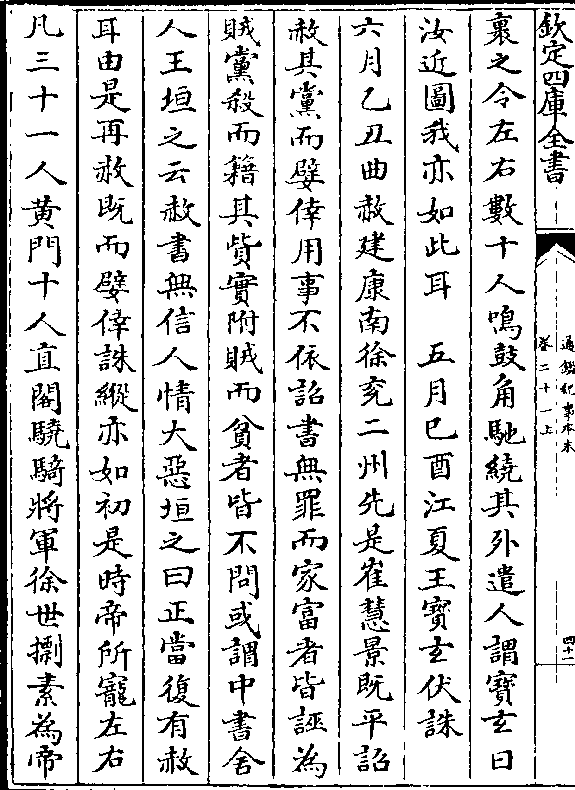 欽定四庫全書
通鑑紀事本末
卷二十一上
四十一
裹之令左右數十人鳴鼓角馳繞其外遣人謂寶玄曰
汝近圍我亦如此耳　五月己酉江夏王寶玄伏誅
六月乙丑曲赦建康南徐兗二州先是崔慧景既平詔
赦其黨而嬖倖用事不依詔書無罪而家富者皆誣為
賊黨殺而籍其貲實附賊而貧者皆不問或謂中書舍
人王垣之云赦書無信人情大惡垣之曰正當復有赦
耳由是再赦既而嬖倖誅縱亦如初是時帝所寵左右
凡三十一人黃門十人直閤驍騎將軍徐世㯿素為帝